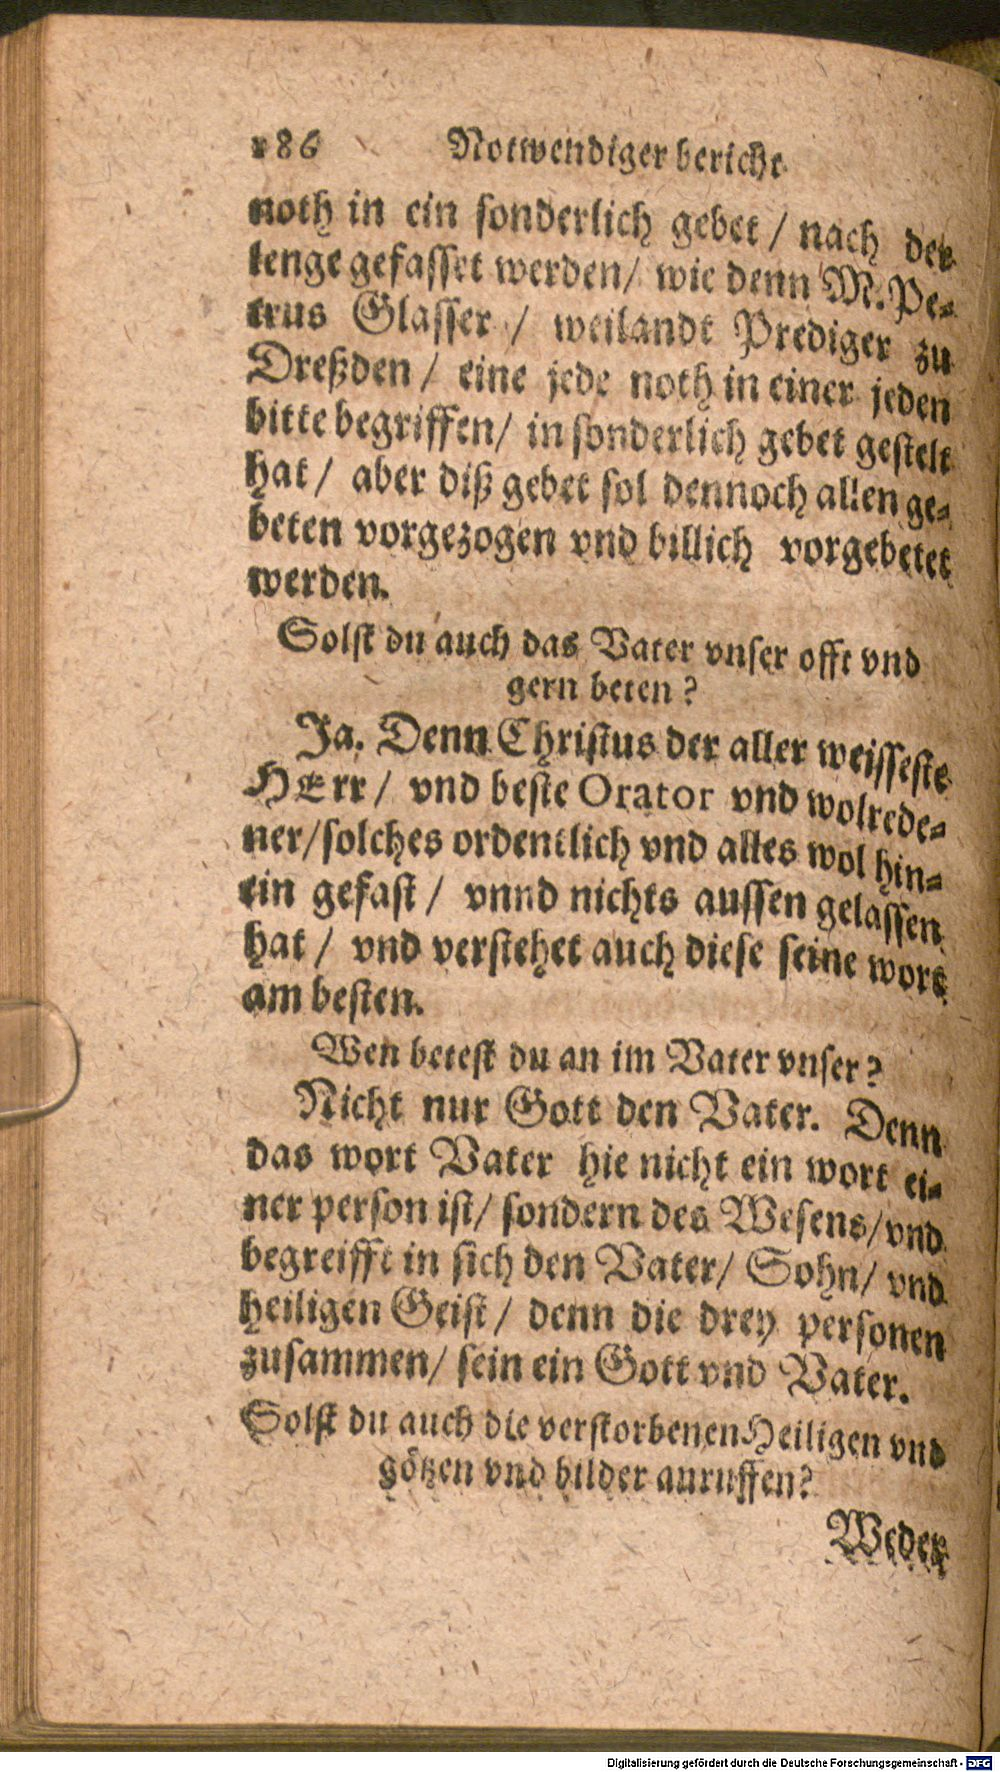 186 Notwendiger bericht
noth in ein sonderlich gebet / nach der
lenge gefasset werden/ wie denn M. Pe-
trus Glasser / weilandt Prediger zu
Dreßden / eine jede noth in einer jeden
bitte begriffen/ in sonderlich gebet gestelt
hat / aber diß gebet sol dennoch allen ge-
beten vorgezogen vnd billich vorgebetet
werden.
Solst du auch das Vater vnser offt vnd
gern beten?
Ja. Denn Christus der aller weisseste
HErr / vnd beste Orator vnd wolrede-
ner/solches ordentlich vnd alles wol hin-
ein gefast / vnnd nichts aussen gelassen
hat / vnd verstehet auch diese seine wort
am besten.
Wen betest du an im Vater vnser?
Nicht nur Gott den Vater. Denn
das wort Vater hie nicht ein wort ei-
ner person ist/ sondern des Wesens/vnd
begreifft in sich den Vater/ Sohn/ vnd
heiligen Geist / denn die drey personen
zusammen/ sein ein Gott vnd Vater.
Solst du auch die verstorbenen Heiligen vnd
götzen vnd bilder anruffen?
Weder
Digitalisierung gefördert durch die Deutsche Forschungsgemeinschaft - DFG